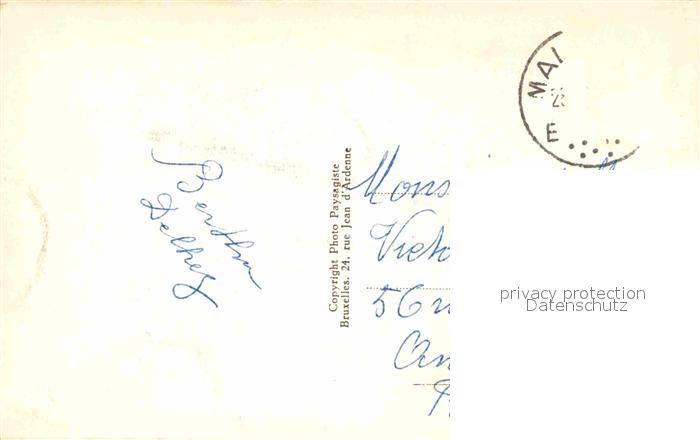 Bertha
Delhez
Copyright Photo Paysagiste
Bruxelles. 24, rue Jean d'Ardenne
MAI
E
Mons
Victo
56
privacy protection
Datenschutz